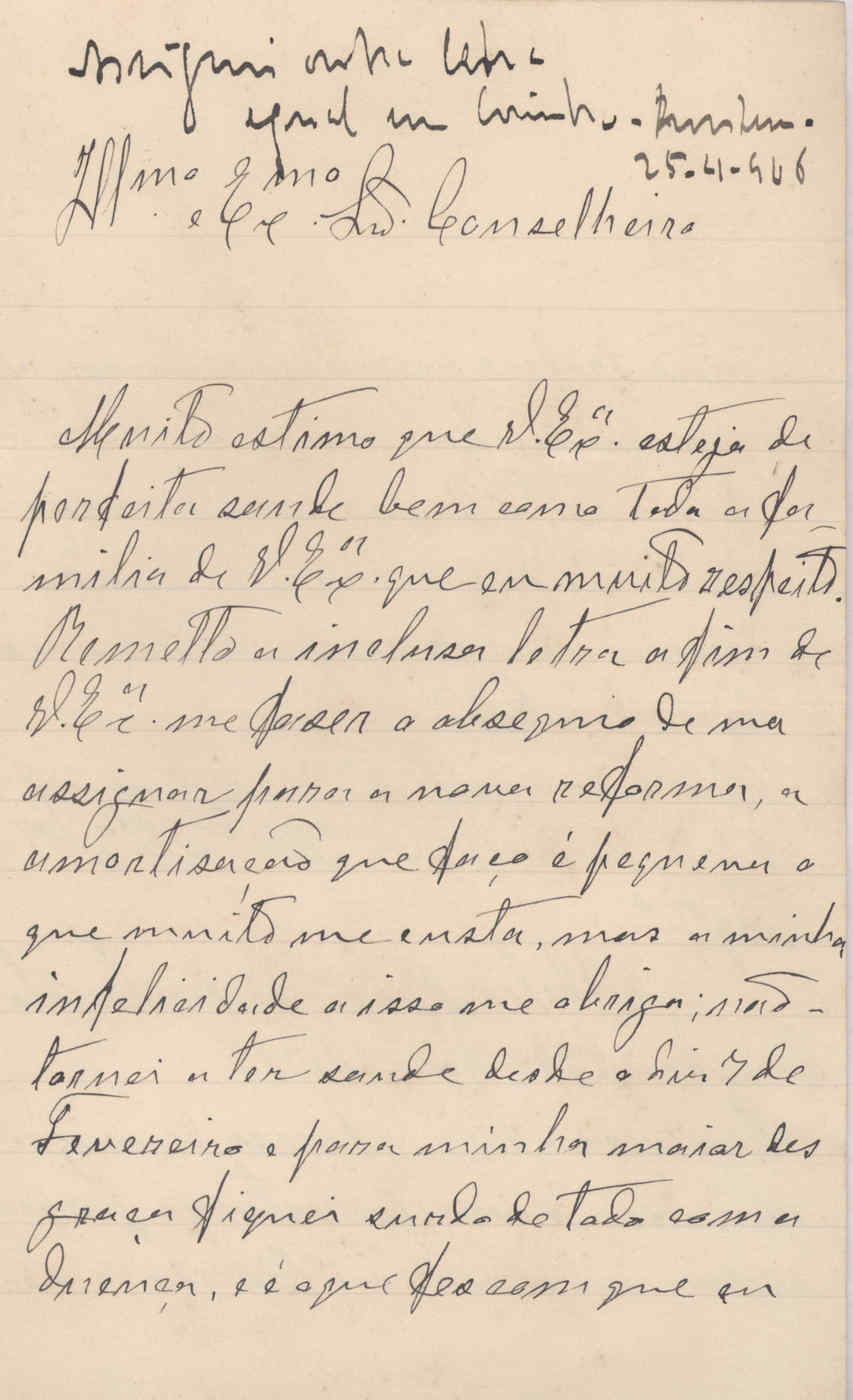 Assignei outra letra
egual em Coimbra.
25-4-906
Illmo e Exmo Snr. Conselheiro
Muito estimo que V. Exa. esteja de
perfeita saude bem como toda a fa-
milia de V. Exa. que eu muito respeito.
Remetto a inclusa letra a fim de
V. Exa. me faser o obsequio de ma
assignar para a nova reforma, a
amortisação que faço é pequena o
que muito me custa, mas a minha
infelicidade a isso me obriga; não-
tornei a ter saude desde o dia 7 de
Fevereiro e para minha maior des
graça fiquei surdo de todo com a
duença, e é o que fes com que eu